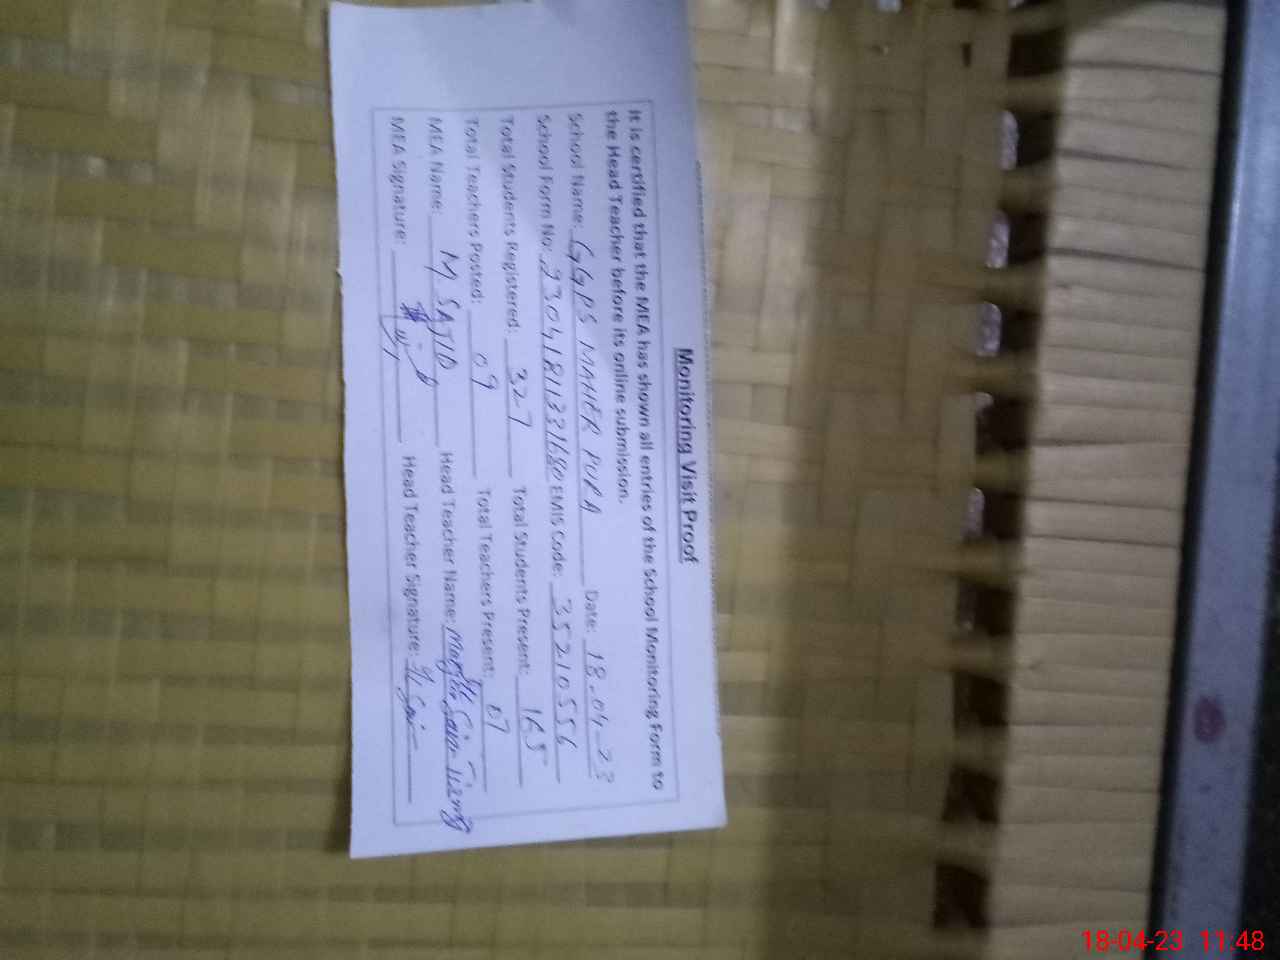 Monitoring Visit Proof
It is certified that the MEA has shown all entries of the School Monitoring Form to
the Head Teacher before its online submission.
School Name: GGPS MAHER PURA Date: 18-04-23
School Form No: 23041811331680 EMIS Code: 35210556
Total Students Registered: 327 Total Students Present: 165
Total Teachers Posted: 09 Total Teachers Present: 07
MEA Name: M. SAJID Head Teacher Name:
MEA Signature: Head Teacher Signature:
18-04-23 11:48